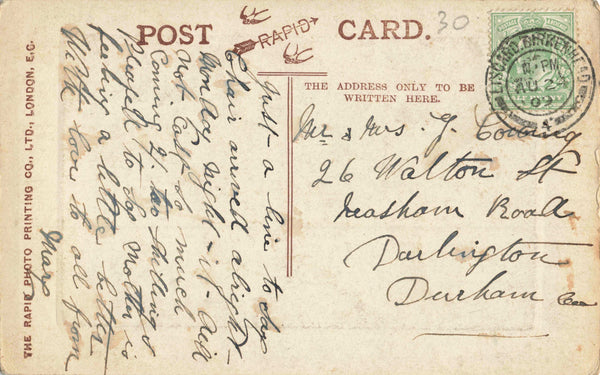 POST CARD.
RAPID
30
THE ADDRESS ONLY TO BE
WRITTEN HERE.
LISCARD. BIRKENHEAD
PM
AU 24
Mr & Mrs. J.
26 Walton St
Neasham Road
Darlington
Durham
Just a line to say
Chair arrived alright
Monday night - it did
not cost so much
Coming 2/- two shillings
pleased to say Mother is
feeling a little better
With love to all from
Mary
THE RAPID PHOTO PRINTING CO., LTD., LONDON, E.C.